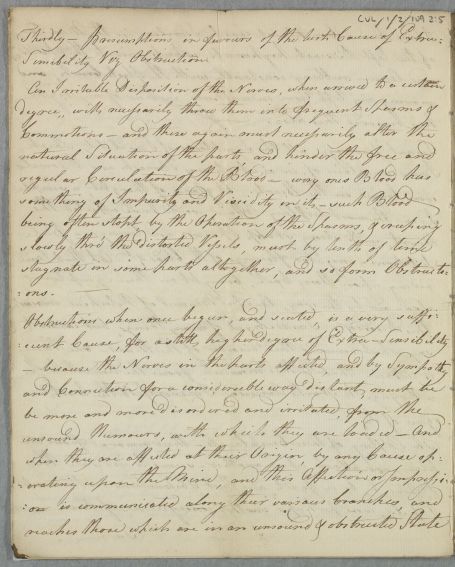 CUL/1/2/109 2:5
Thirdly — Presumptions in favours of the Cause of Extra=
Sensibility Viz Obstruction
An Irritable Disposition of the Nerves, when arrived to a certain
degree, will necessarily throw them into frequent Spasms &
Commotions — and these again must necessarily alter the
natural Situation of the parts, and hinder the free and
regular Circulation of the Blood — every ones Blood has
something of Impurity and Viscidity in it — such Blood
being often stopt by the Operation of the Spasms, & creeping
slowly thro' the Distorted Vessels, must by lenth of time
stagnate in some parts altogether, and so form Obstructi=
:ons.
Obstructions when once begun, and seated, is a very suffi=
:cient Cause, for a still higher degree of Extra-Sensibility
— because the Nerves in the parts affected, and by Sympathy
and Connection for a considerable way distant, must be
be more and more disordered and irritated, from the
unsound Humours, with which they are loaded — And
when they are affected at their Origin, by any Cause op=
:erating upon the Mind, and this Affection or Impressi=
:on is communicated along their various branches, and
reaches those which are in an unsound & obstructed State